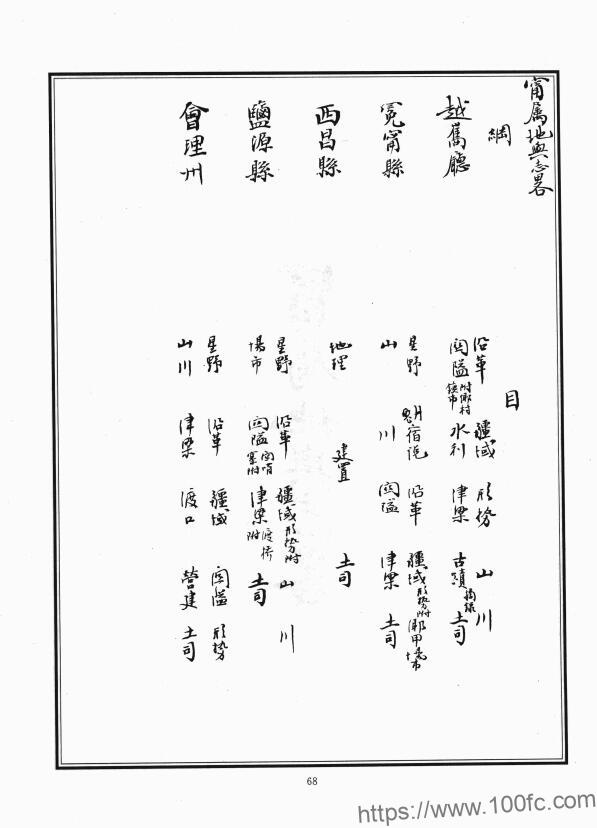 甯属地輿志畧
綱
目
越嶲廳
沿革 疆域 形勢 山川
関隘附鄉村鎮市 水利 津梁 古蹟摘錄 土司
冕甯縣
星野 觜宿説 沿革 疆域形勢附
山川 関隘 津梁 土司
西昌縣
地理 建置 土司
鹽源縣
星野 沿革 疆域形勢附 山川
場市 関隘 津梁渡橋附 土司
會理州
星野 沿革 疆域 関隘 形勢
山川 津梁 渡口 營建 土司
68
https://www.100fc.com